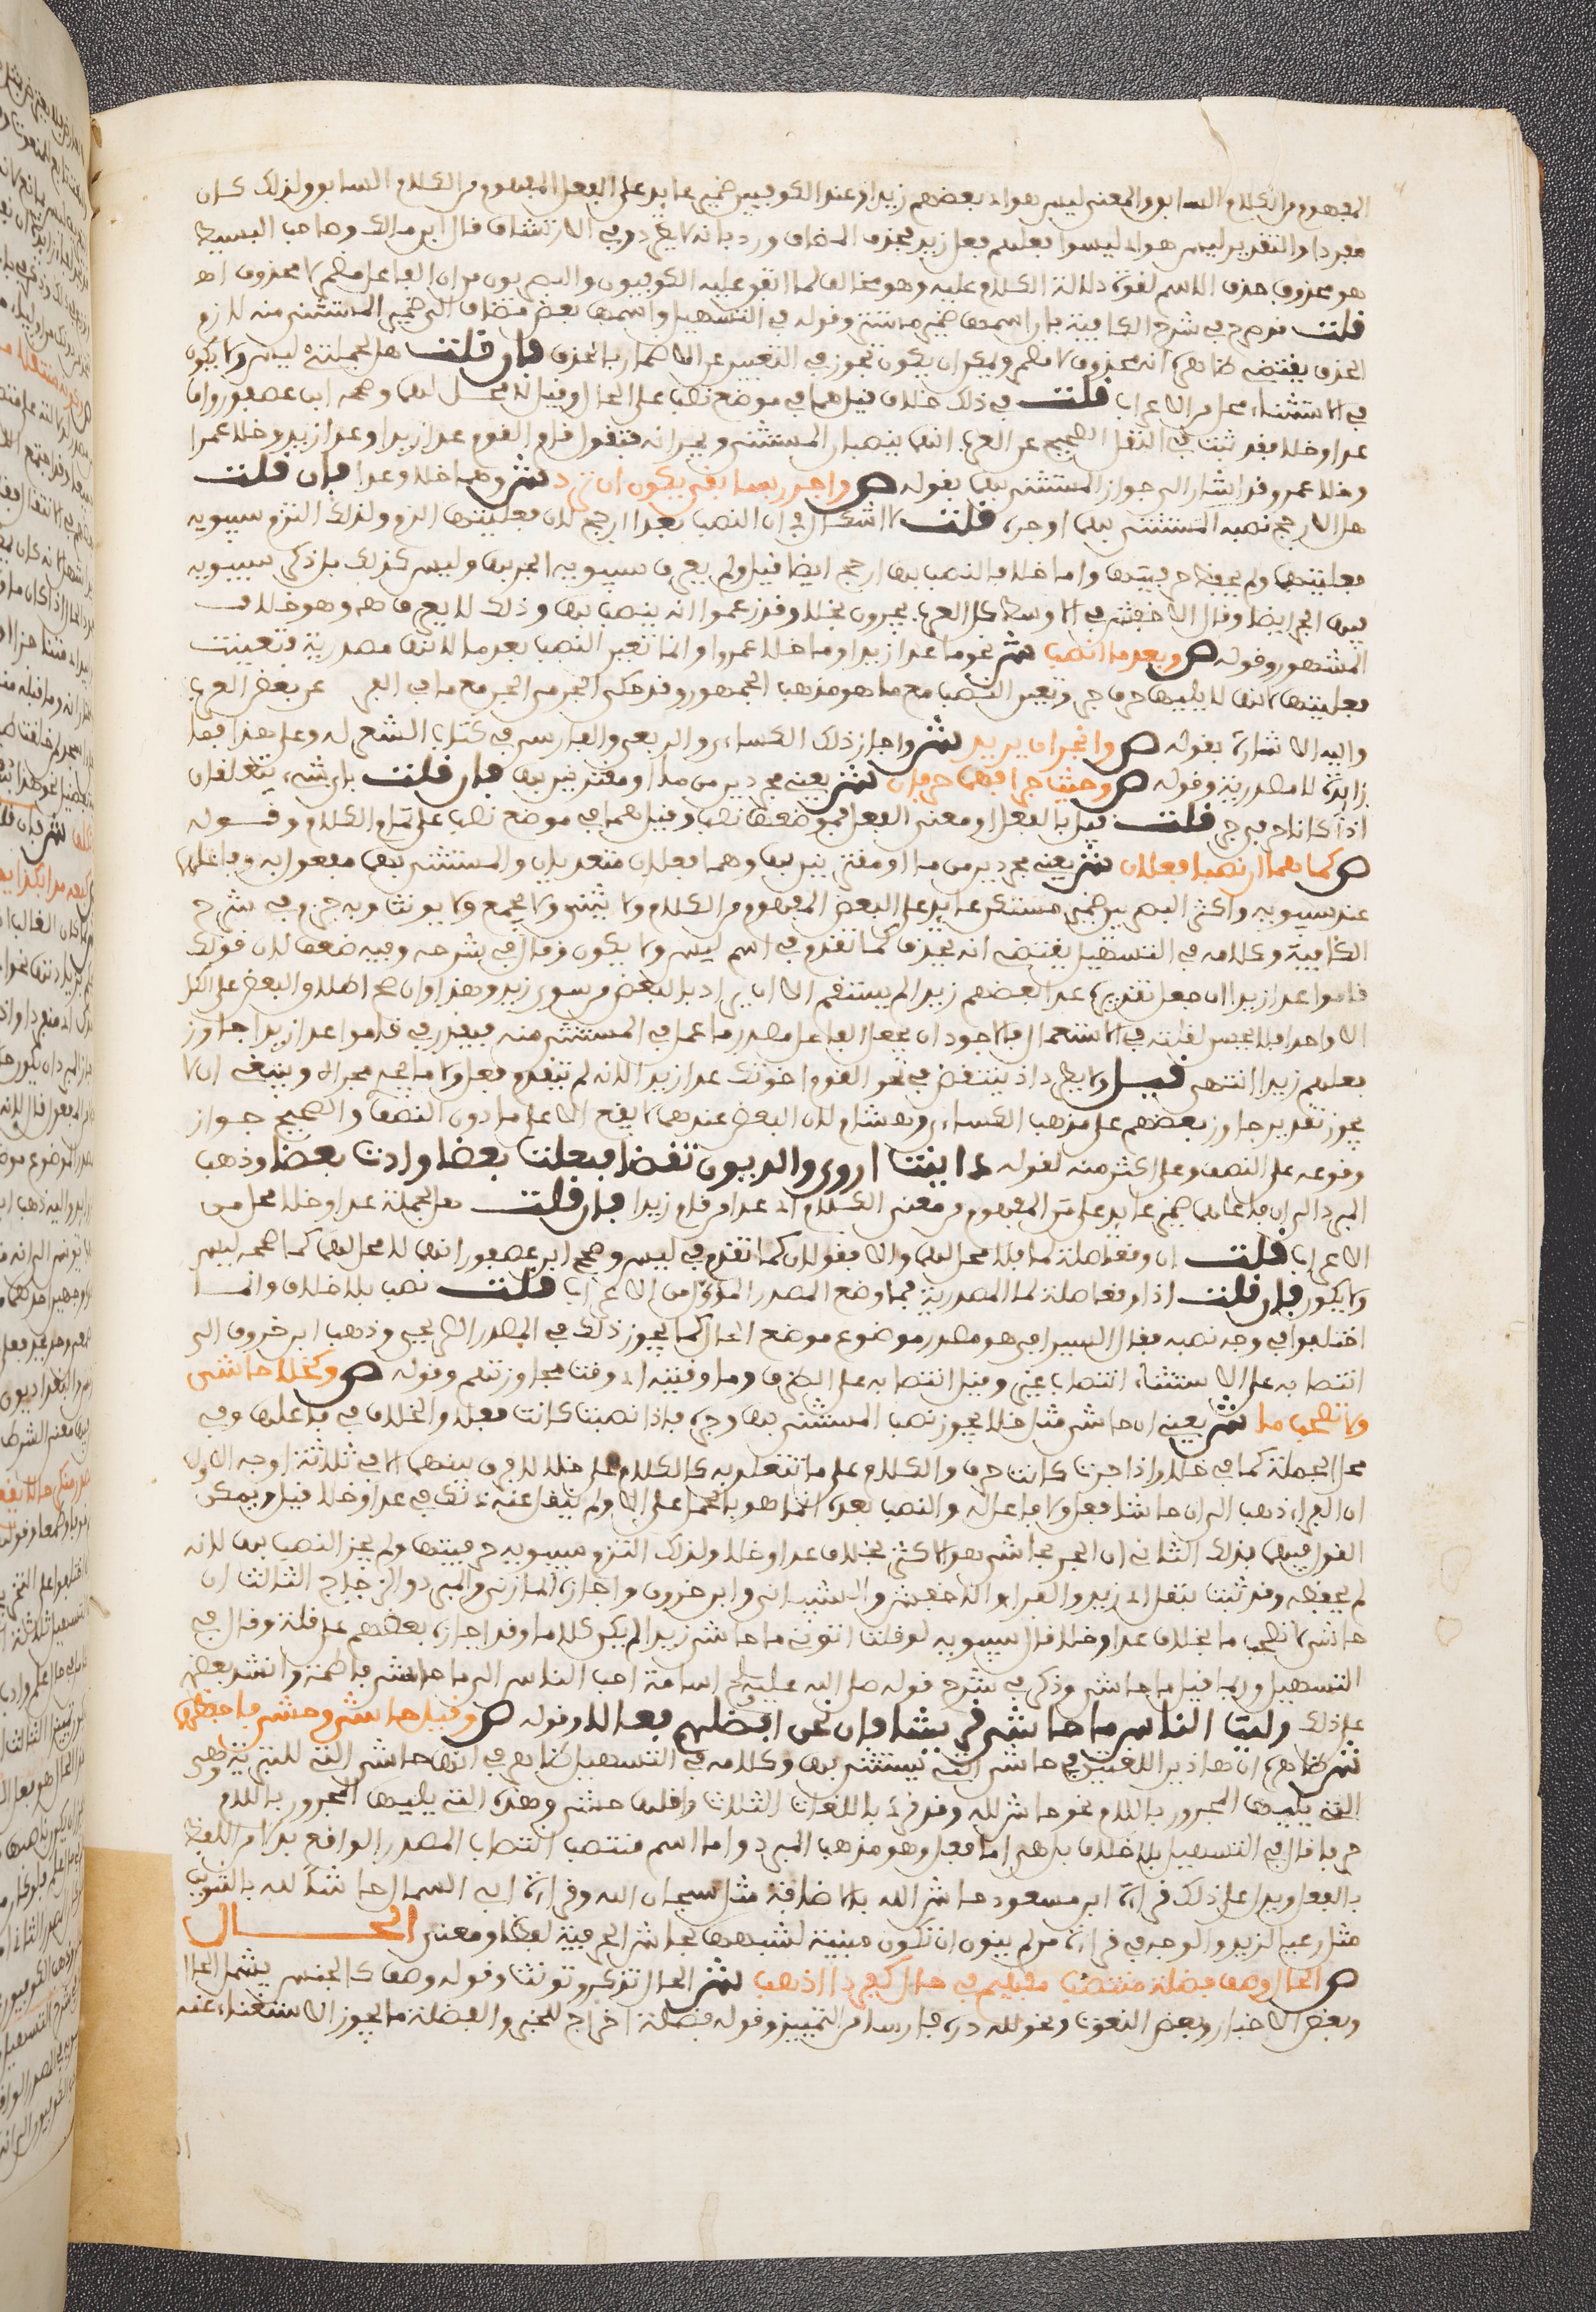 المفهوم من الكلام السابق والمعنى ليس هو اي بعضهم زيدا وعند الكوفيين ضمير عايد على الفعل المفهوم من الكلام السابق ولذلك كان
مفردا والتقدير ليس هو اي ليسوا فعلهم فعل زيد فحذف المضاف ورد بانه لا يطرد وفي الارتشاف قال ابن مالك وصاحب البسيط
هو محذوف حذف الاسم لقوة دلالة الكلام عليه وهو مخالف لما اتفق عليه الكوفيون والبصريون من ان الفاعل مضمر لا محذوف اه
قلت صرح في شرح الكافية بان اسمها ضمير مستتر وقوله في التسهيل واسمها بعض مضاف الى ضمير المستثنى منه لازم
الحذف يقتضي ظاهره انه محذوف لا مضمر ويمكن ان يكون تجوز في التعبير عن الاضمار بالحذف فان قلت هل لجملتي ليس ولا يكون
في الاستثناء محل من الاعراب قلت في ذلك خلاف قيل هما في موضع نصب على الحال وقيل لا محل لها وصححه ابن عصفور واما
عدا وخلا فقد ثبت في النقل الصحيح عن العرب انها ينصبان المستثنى ويجرانه فتقول قام القوم عدا زيدا وعدا زيد وخلا عمرا
وخلا عمرو وقد اشار الى جواز المستثنى بهما بقوله ص واجرر بسابقي يكون ان ترد ش وهما خلا وعدا فان قلت
هل الارجح نصب المستثنى بهما او جره قلت لا اشكال في ان النصب بعدا ارجح لان فعليتها الزم ولذلك التزم سيبويه
فعليتها ولم يحفظ حرفيتها واما خلا فالنصب بها ارجح ايضا قيل ولم يعرف سيبويه الجر بها وليس كذلك بل ذكر سيبويه
فيها الجر ايضا وقال الاخفش في الاوسط كل العرب يجرون بخلا وقد زعموا انه ينصب بها وذلك لا يعرف اه وهو خلاف
المشهور وقوله ص وبعد ما انصب ش نحو ما عدا زيدا وما خلا عمروا وانما تعين النصب بعد ما لانها مصدرية فتعينت
فعليتها لانها لا يليها حرف جر وتعين النصب مع ما هو مذهب الجمهور وقد حكى الجرمي الجر مع ما في عن بعض العرب
واليه الاشارة بقوله ص وانجرار قد يرد ش واجاز ذلك الكساءي والربعي والفارسي في كتاب الشعر له وعلى هذا فما
زايدة لا مصدرية وقوله ص وحيث جرا فهما حرفان ش يعني مجردين من ما او مقترنين بها فان قلت باي شيء يتعلقان
اذا كانا حرفي جر قلت قيل بالفعل او معنى الفعل فموضعهما نصب وقيل هما في موضع نصب على تمام الكلام وقوله
ص كما هما ان نصبا فعلان ش يعني مجردين من ما او مقترنين بها وهما فعلان متعديان والمستثنى بهما مفعول به وفاعلهما
عند سيبويه واكثر البصريين ضمير مستكن عايد على البعض المفهوم من الكلام ولا يثنى ولا يجمع ولا يونث وبه جزم في شرح
الكافية وكلامه في التسهيل يقتضي انه يحذف كما تقدم في اسم ليس ولا يكون وقال في شرحه وفيه ضعف لان قولك
قاموا عدا زيدا ان جعل تقديره عدا بعضهم زيدا لم يستقم الا ان يراد بالبعض من سوى زيد وهذا وان صح اطلاق البعض على الكل
الا واحدا فلا يحسن لقلته في الاستعمال فالاجود ان يجعل الفاعل مصدر ما عمل في المستثنى منه فيقدر في قاموا عدا زيدا جاوز
فعلهم زيدا انتهى قيل ولا يطرد اذ ينتقض في نحو القوم اخوتك عدا زيدا لانه لم يتقدم فعل ولا ما يجري مجراه وينبغي ان لا
يجوز تقدير جاوز بعضهم على مذهب الكساءي وهشام لان البعض عندهما لا يقع الا على ما دون النصف والصحيح جواز
وقوعه على النصف وعلى اكثر منه لقوله داينت اروى والديون تقضى فمطلت بعضا وادت بعضا وذهب
المبرد الى ان فاعلها ضمير عايد على من المفهوم من معنى الكلام اي عدا من قام زيدا فان قلت هل لجملة عدا وخلا محل من
الاعراب قلت ان وقعا صلة لما فلا محل لها والا فقولان كما تقدم في ليس وصحح ابن عصفور انها لا محل لها كما صححه في ليس
ولا يكون فان قلت اذا وقعا صلة لما المصدرية فما وضع المصدر المؤول من الاعراب قلت نصب بلا خلاف وانما
اختلفوا في وجه نصبه فقال السيرافي هو مصدر موضوع موضع الحال كما يجوز ذلك في المصدر الصريح وذهب ابن خروف الى
انتصابه على الاستثناء انتصاب غير وقيل انتصابه على الظرف وما وقتية اي وقت مجاوزتهم وقوله ص وكخلا حاشى
ولا تصحب ما ش يعني ان حاشى مثل خلا يجوز نصب المستثنى بها وجره فاذا نصبت كانت فعلا والخلاف في فاعلها وفي
محل الجملة كما في خلا واذا جرت كانت حرفا والكلام على ما تتعلق به كالكلام على خلا لا فرق بينهما الا في ثلاثة اوجه الاول
ان الفراء ذهب الى ان حاشا فعل ولا فاعل له والنصب بعده انما هو بالحمل على الا ولم ينقل عنه ذلك في عدا وخلا قيل ويمكن
القول فيهما بذلك الثاني ان الجر بحاشى هو الاكثر بخلاف عدا وخلا ولذلك التزم سيبويه حرفيتها ولم يجز النصب بها لانه
لم يحفظه وقد ثبت بنقل ابي زيد والفراء والاخفش والشيباني وابن خروف واجازه المازني والمبرد والزجاج الثالث ان
حاشى لا تصحب ما بخلاف عدا وخلا قال سيبويه لو قلت اتوني ما حاشى زيدا لم يكن كلاما وقد اجازه بعضهم على قلة وقال في
التسهيل وربما قيل ما حاشى وذكر في شرحه قوله صلى الله عليه وسلم اسامة احب الناس الي ما حاشى فاطمة وانشد بعضهم
على ذلك رايت الناس ما حاشى قريشا فان نحن افضلهم فعالا وقوله ص وقيل حاش وحشى فاحفظهما
ش ظاهره ان هاذين اللغتين في حاشى التي يستثنى بها وكلامه في التسهيل ظاهره في انها حاشى التي للتنزيه وهي
التي يليها المجرور باللام نحو حاش لله وقد قرئ باللغات الثلاث واقلها حشى وهذه التي يليها المجرور باللام ليست
حرفا قال في التسهيل بلا خلاف بل هي اما فعل وهو مذهب المبرد واما اسم منتصب انتصاب المصدر الواقع بدلا من اللفظ
بالفعل ويدل على ذلك قراءة ابن مسعود حاشى الله بالاضافة مثل سبحان الله وقراءة ابي السمال حاشا لله بالتنوين
مثل رعيا لزيد والوجه في قراءة من لم ينون ان تكون مبنية لشبهها بحاشى الحرفية لفظا ومعنى الحال
ص الحال وصف فضلة منتصب مفهم في حال كفردا اذهب ش الحال تذكر وتونث وقوله وصف كالجنس يشمل الحال
وبعض الاخبار وبعض النعوت ونحو لله دره فارسا من التمييز وقوله فضلة اخراج للخبر والفضلة ما يجوز الاستغناء عنه